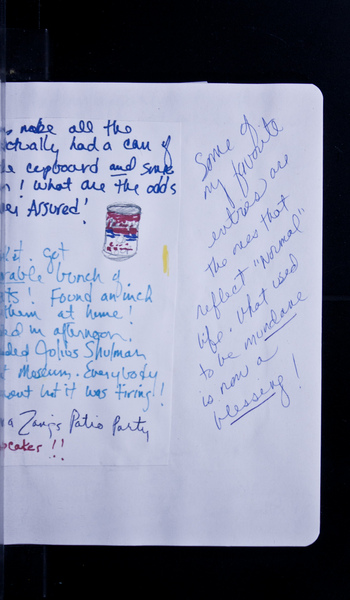 make all the
ctually had a can of
e cupboard and some
! What are the odds
Assured!
get
rable bunch of
ts! Found an inch
them at home!
ed in afternoon.
ded Julius Shulman
t Museum. Everybody
out but it was tiring!!
a Zang's Patio Party
cakes!!
Some of
my favorite
entries are
the ones that
reflect "normal"
life. What used
to be mundane
is now a
blessing!